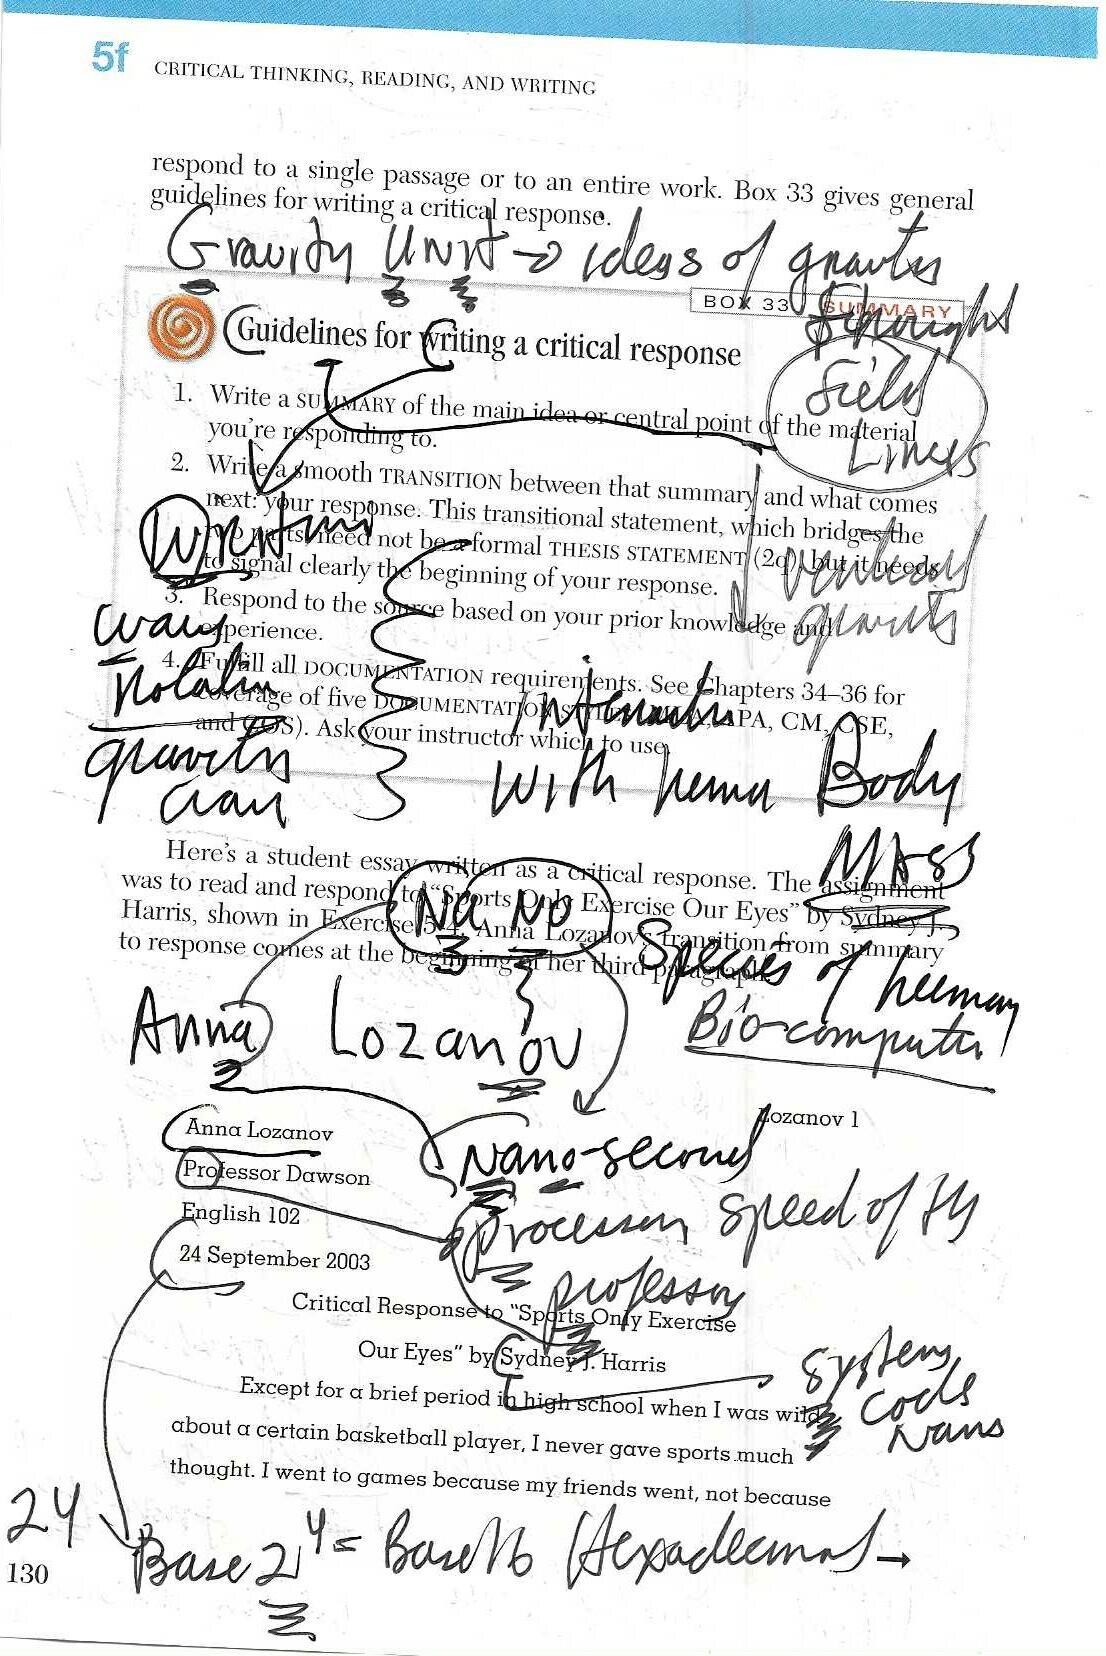 5f CRITICAL THINKING, READING, AND WRITING
respond to a single passage or to an entire work. Box 33 gives general
guidelines for writing a critical response.
Gravity UNIT → ideas of gravity
BOX 33 SUMMARY
Guidelines for writing a critical response
Field
Lines
1. Write a SUMMARY of the main idea or central point of the material
you're responding to.
2. Write a smooth TRANSITION between that summary and what comes
next: your response. This transitional statement, which bridges the
two parts, need not be a formal THESIS STATEMENT (2q), but it needs
to signal clearly the beginning of your response.
gravity
3. Respond to the source based on your prior knowledge and
experience.
4. Fulfill all DOCUMENTATION requirements. See Chapters 34–36 for
coverage of five DOCUMENTATION APA, CM, CSE,
and COS). Ask your instructor which to use.
gravity
with Body
MASS
Here's a student essay written as a critical response. The assignment
was to read and respond to "Sports Only Exercise Our Eyes" by Sydney J.
Harris, shown in Exercise 5-4. Anna Lozanov's transition from summary
to response comes at the beginning of her third paragraph.
Na No
Species of human
Bio-computer
Anna Lozanov
Lozanov 1
Anna Lozanov
Nano-second
Professor Dawson
processor speed of
English 102
24 September 2003
professor
Critical Response to "Sports Only Exercise
Our Eyes" by Sydney J. Harris
System
Code
Nano
Except for a brief period in high school when I was wild
about a certain basketball player, I never gave sports much
thought. I went to games because my friends went, not because
24
Base 2⁴ = Base 16 Hexadecimal →
130